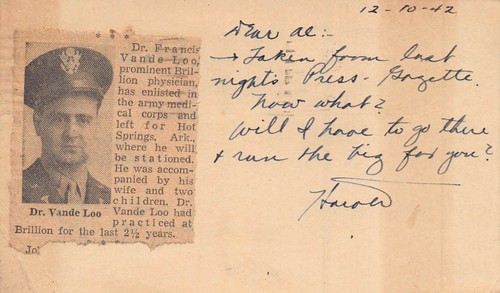 Dr. Francis
Vande Loo,
prominent Bril-
lion physician,
has enlisted in
the army medi-
cal corps and
left for Hot
Springs, Ark.,
where he will
be stationed.
He was accom-
panied by his
wife and two
children. Dr.
Vande Loo had
practiced at
Brillion for the last 2½ years.
Dr. Vande Loo
12-10-42
Dear Al:-
→ Taken from last
nights Press-Gazette.
Now what?
Will I have to go there
+ run the big for you?
Harold